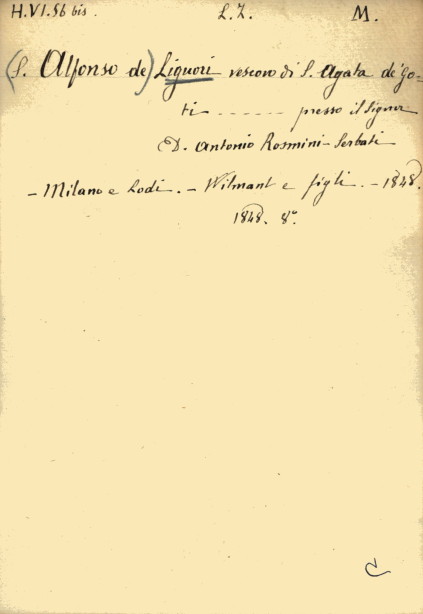 H.VI.56 bis L.Z. M.
(S. Alfonso de) Liguori vescovo di S. Agata de' Go=
ti ------- presso il Signor
D. Antonio Rosmini-Serbati
- Milano e Lodi. - Wilmant e figli. - 1848.
1848. 8°.
C